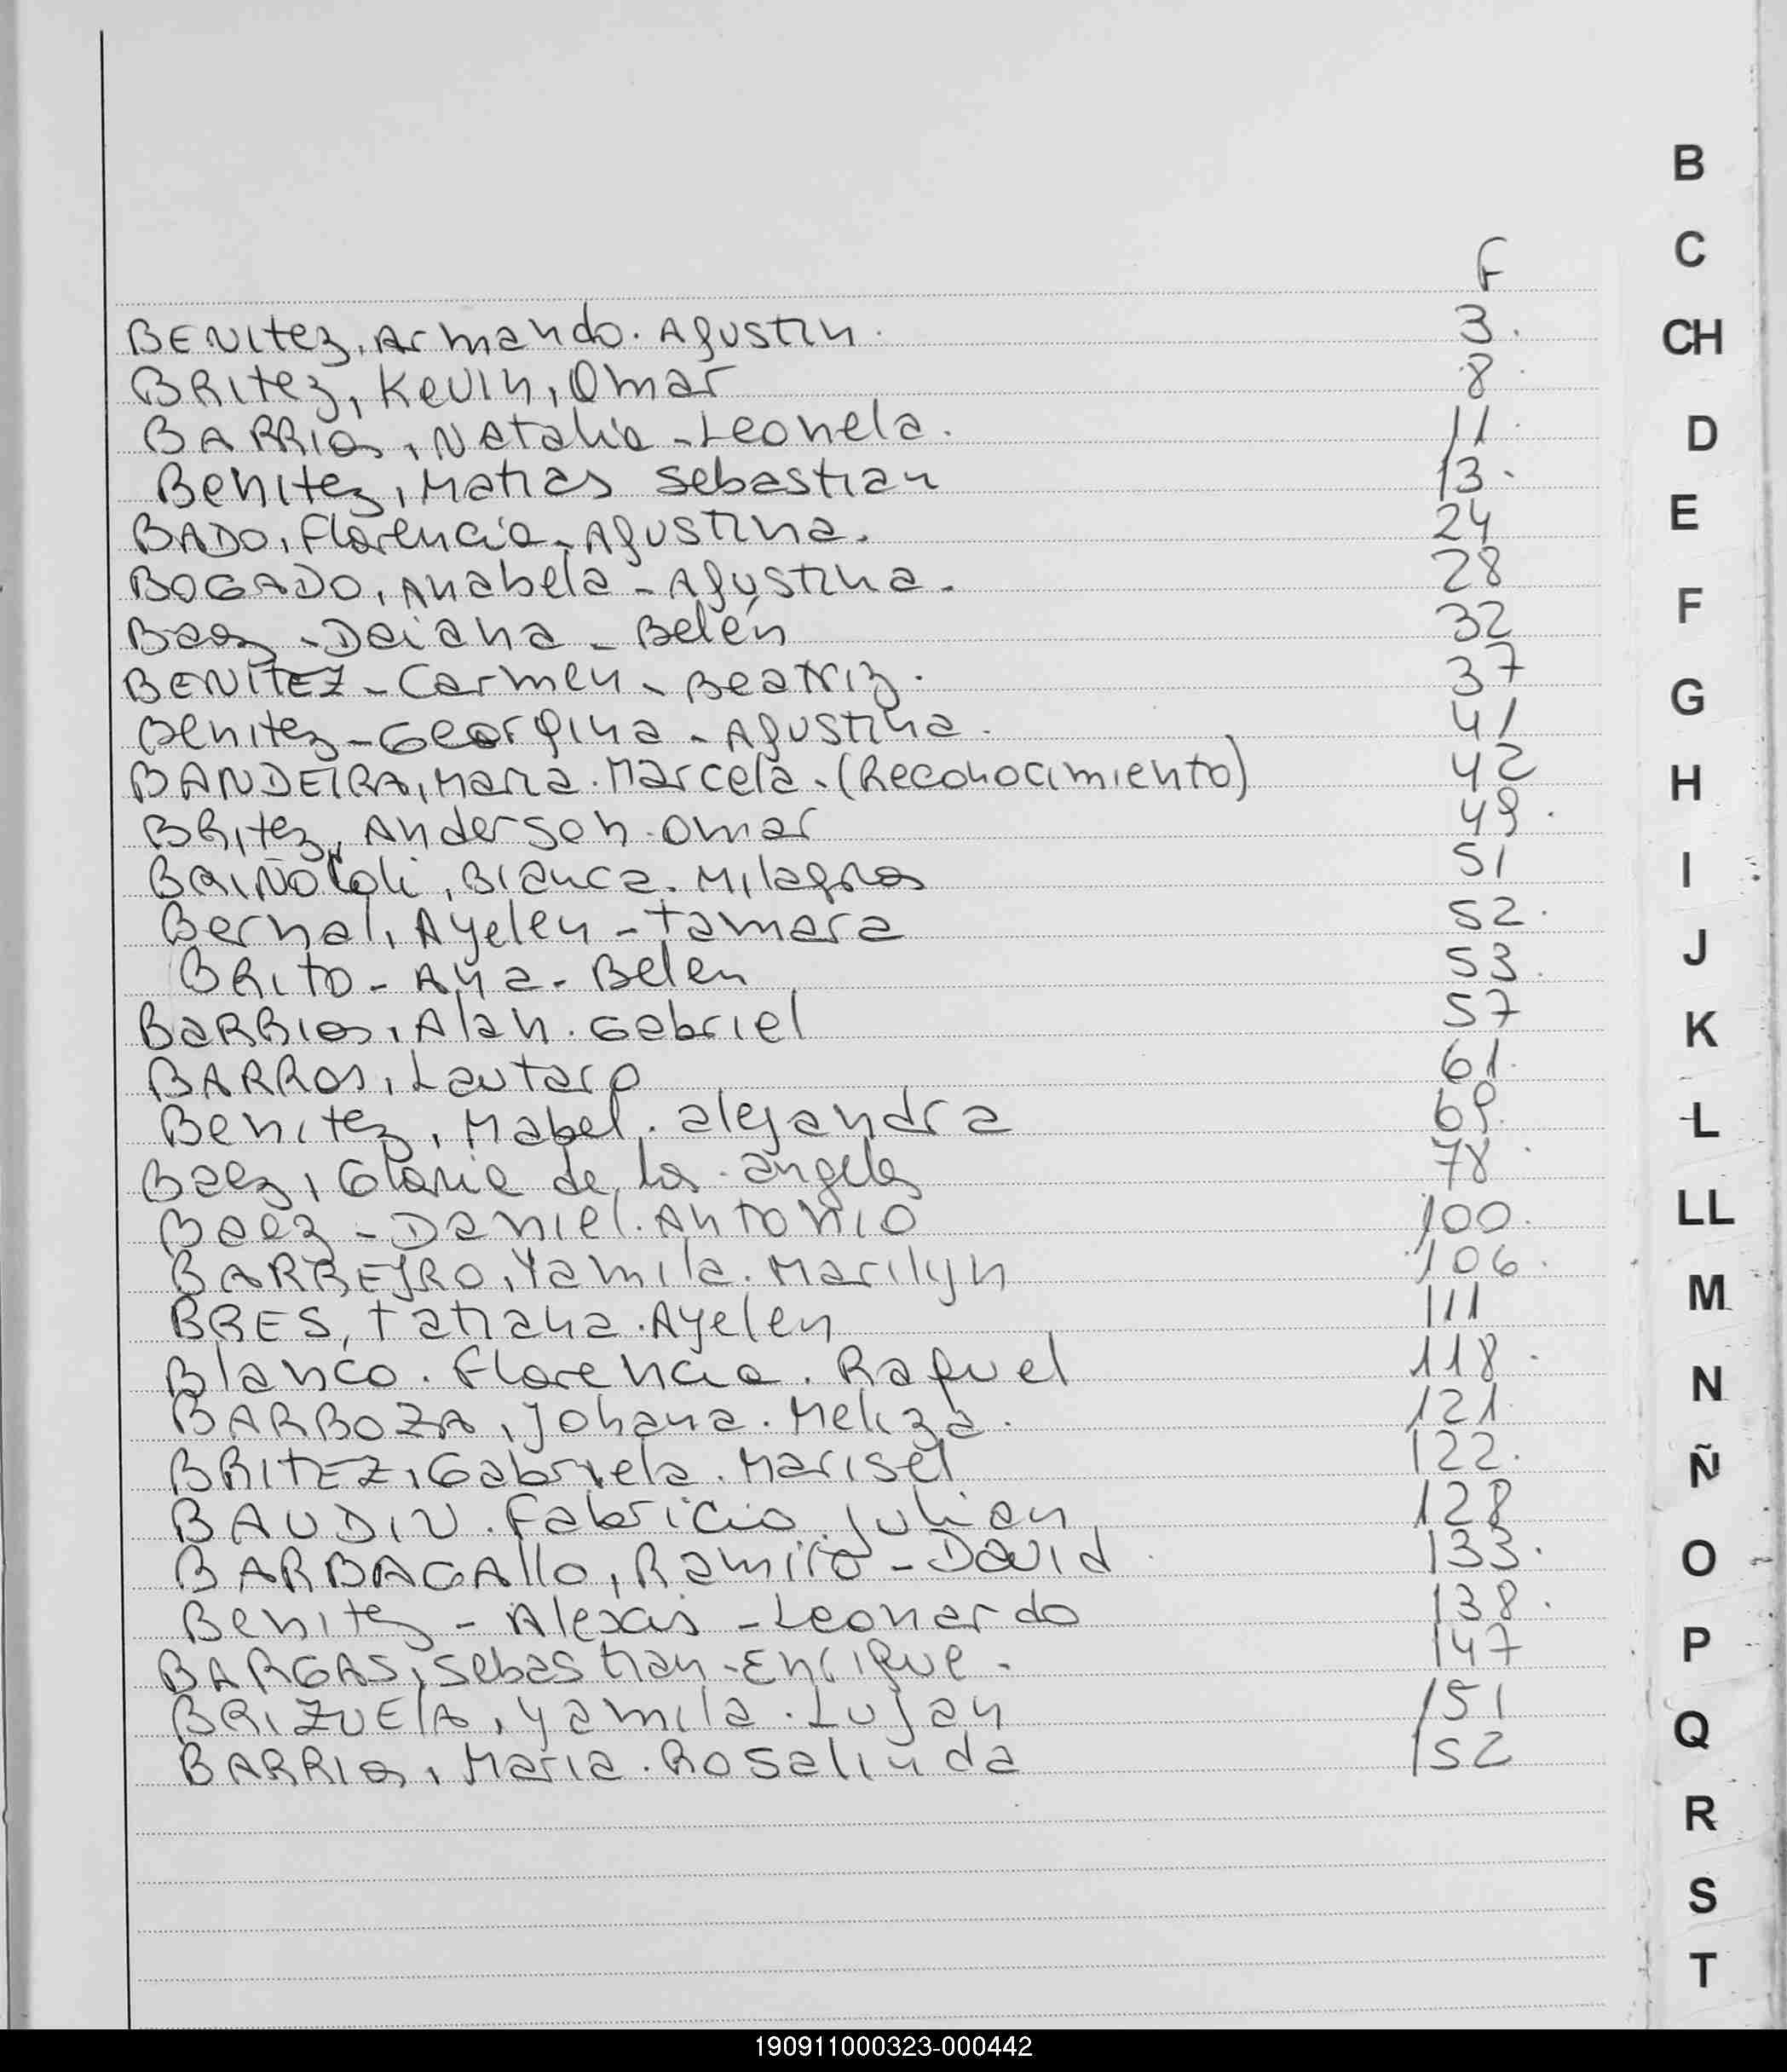 B
C
F
CH
BENItez, Armando. Agustin. 3.
BRItez, Kevin, Omar 8.
D
BARRIos, Natalia - Leonela. 11.
Benitez, Matias Sebastian 13.
E
BADO, Florencia - Agustina. 24
BOGADO, Anabela - Agustina. 28
F
Baez - Daiana - Belén 32
BENITEZ - Carmen - Beatriz. 37
G
Benitez - Georgina - Agustina. 41
BANDEIRA, Maria. Marcela. (Reconocimiento) 42
H
BRitez, Anderson. Omar 49.
I
Bianca. Milagros 51
Bernal, Ayelen - Tamara 52.
J
BRITO - Ana - Belen 53.
BaRRIos, Alan. Gabriel 57
K
BARROS, Lautaro 61.
Benitez, Mabel. alejandra 69.
L
Baez, Gloria de los angeles 78.
LL
Baez - Daniel. Antonio 100.
BARREYRO, Yamila. Marilyn 106.
M
BRES, Tatiana. Ayelen 111
Blanco. Florencia. Raquel 118.
N
BARBOZA, Johana. Meliza. 121
BRITEZ, Gabriela. Marisel 122.
Ñ
BAUDIN. Fabricio. Julian 128
BARBAGAllo, Ramiro - David 133.
O
Benitez - Alexis - Leonardo 138.
BARGAS, Sebastian - Enrique. 147
P
BRIZUELA, Yamila. Lujan 151
Q
BARRIos, Maria. Rosalinda 152
R
S
T
190911000323-000442